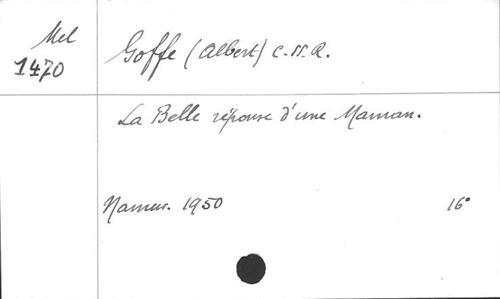 Mel
1470
Goffe (Albert) C.SS.R.
La Belle réponse d'une Maman.
Namur. 1950 16°